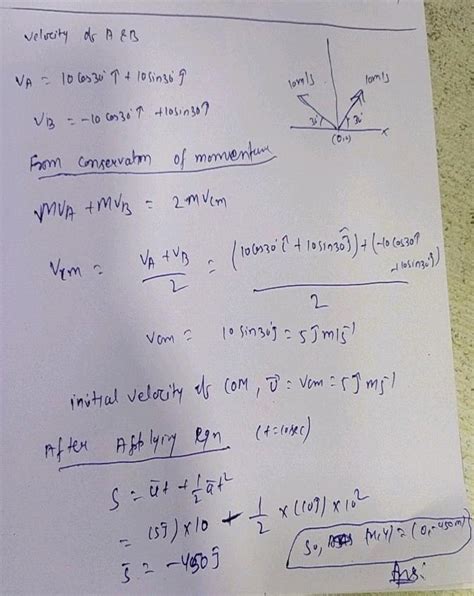 velocity of A & B
VA = 10 cos30° î + 10 sin30° ĵ
VB = -10 cos30° î + 10 sin30 ĵ
10m/s 10m/s
30° 30°
(0,0) x
From conservation of momentum
MVA + MVB = 2MVcm
Vcm = VA + VB / 2 = (10 cos30° î + 10 sin30° ĵ) + (-10 cos30 î + 10 sin30 ĵ) / 2
Vcm = 10 sin30 ĵ = 5 ĵ m/s⁻¹
initial velocity of COM, ū = Vcm = 5 ĵ ms⁻¹
After Applying Eqn (t=10sec)
S = ūt + 1/2 āt²
= (5ĵ) × 10 + 1/2 × (10ĵ) × 10²
S̄ = -450 ĵ
So, (x,y) = (0,-450m)
Ans: